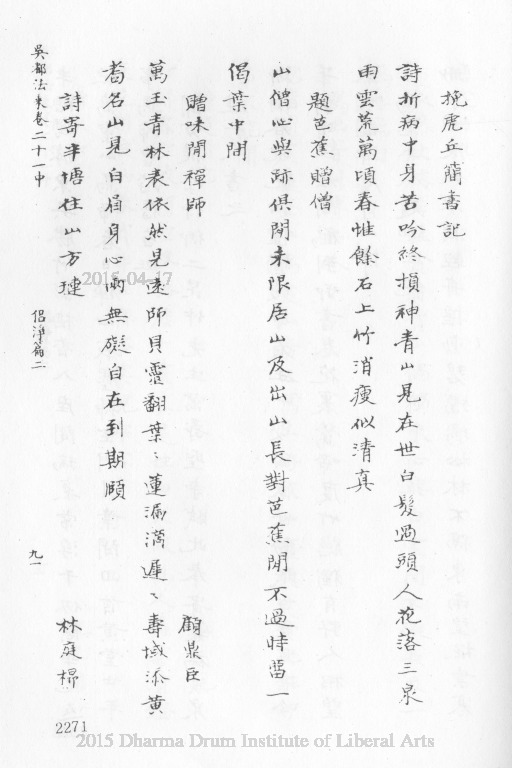 挽虎丘簡書記
詩折病中身苦吟終損神青山見在世白髮過頭人花落三泉
雨雲荒萬頃春惟餘石上竹消瘦似清真
題芭蕉贈僧
山僧心與跡俱閒未限居山及出山長對芭蕉閒不過時當一
偈葉中間
贈味閒禪師 顧鼎臣
萬玉青林表依然見遠師貝靈翻葉〻蓮漏滴遲〻壽域添黃
耇名山見白眉身心兩無礙自在到期頤
詩寄半塘住山方璉 林庭㭿
吳都法乘卷二十一中 侶淨篇二 九一
2271
2015-04-17
2015 Dharma Drum Institute of Liberal Arts